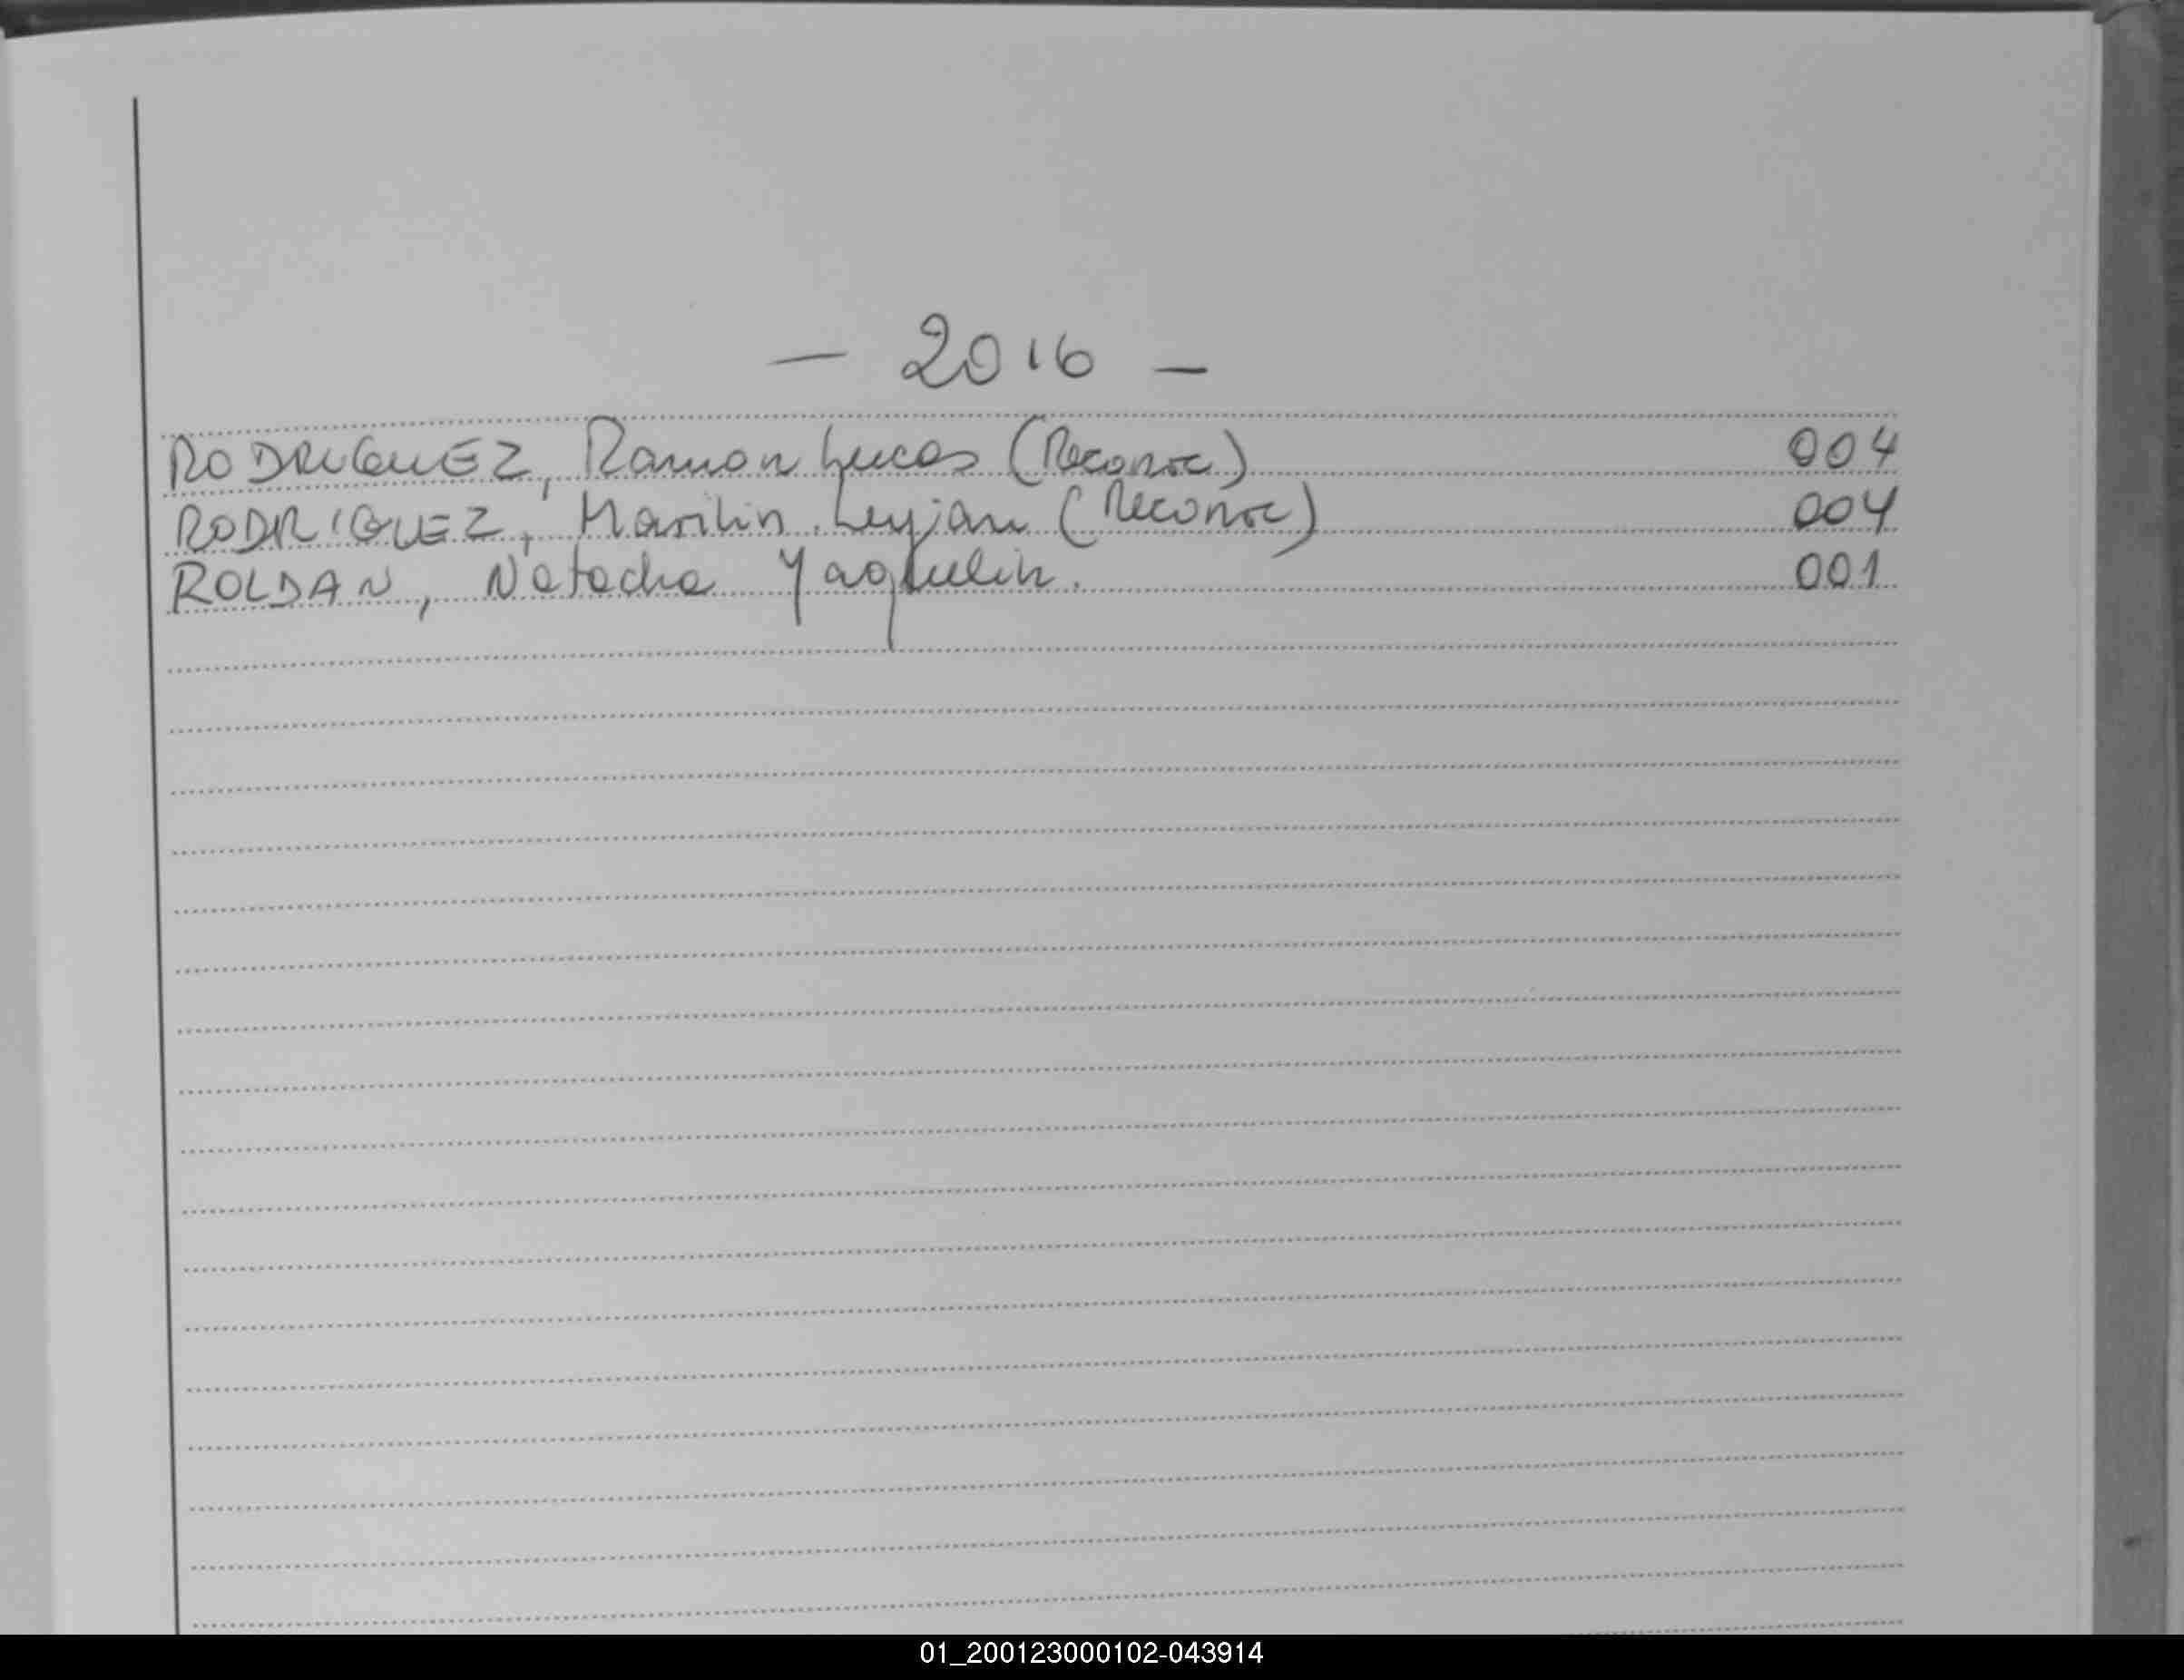 - 2016 -
RODRIGUEZ, Ramon Lucas (Reconoc) 004
RODRIGUEZ, Marilin Leyjan (Reconoc) 004
ROLDAN, Natacha Yaqulin. 001
01_200123000102-043914